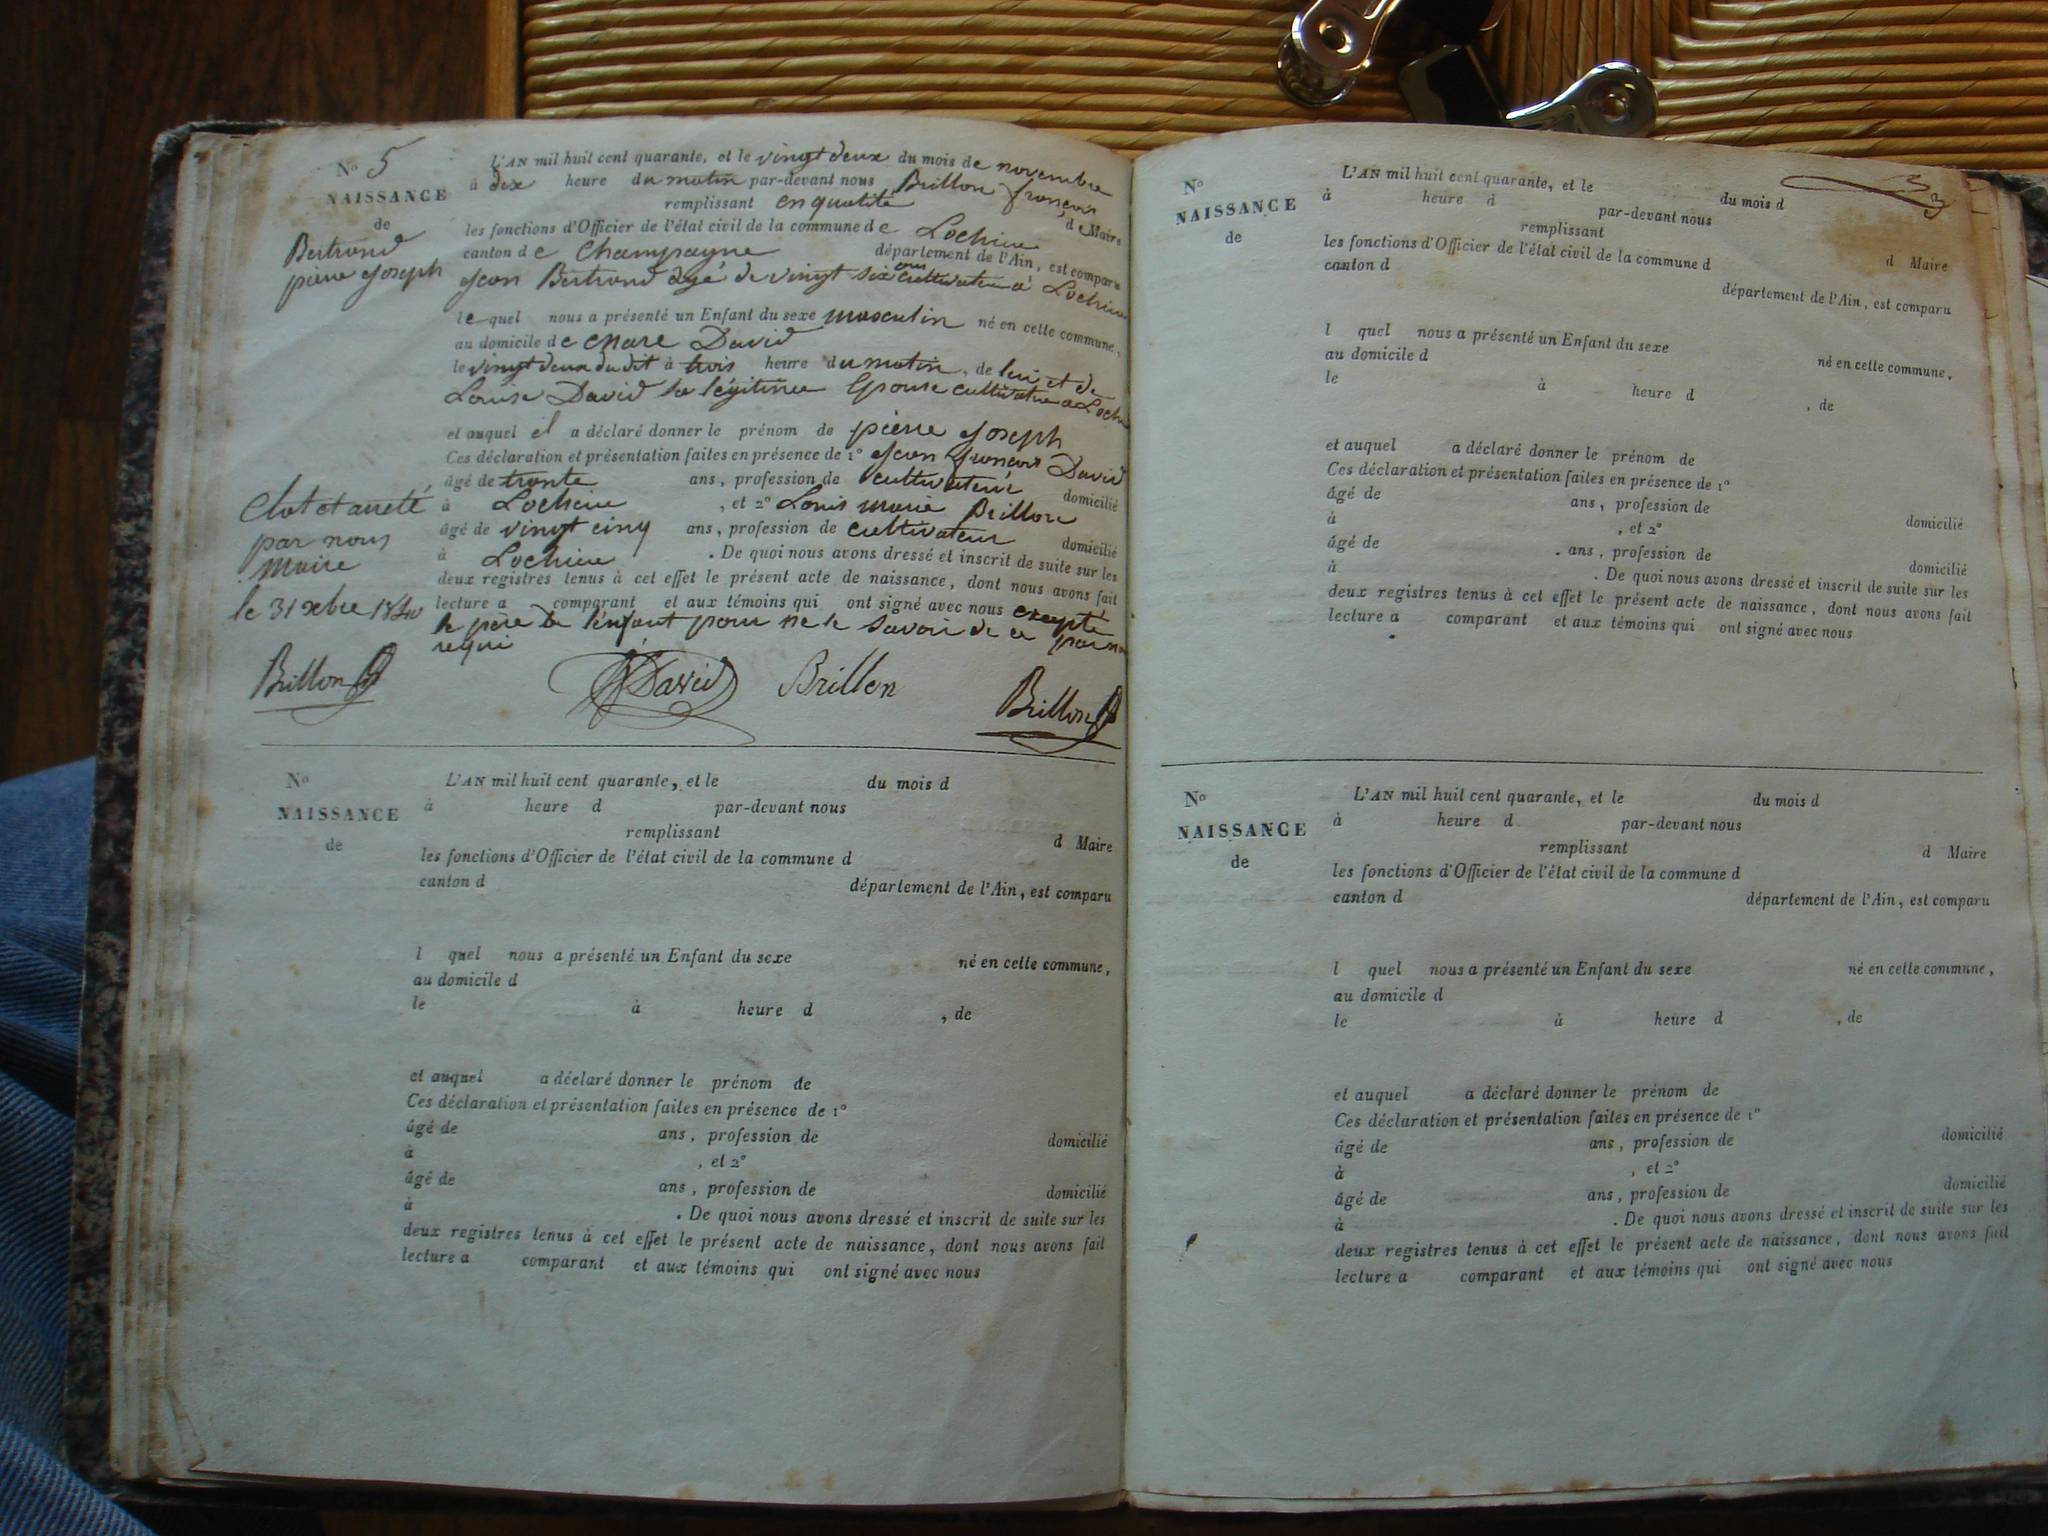 No 5
NAISSANCE
de
Bertrand
pierre Joseph
L'AN mil huit cent quarante, et le vingt deux du mois de novembre
à dix heure du matin par-devant nous Brillon françois
remplissant en qualité de Maire
les fonctions d'Officier de l'état civil de la commune de Lochieu
canton de Champagne département de l'Ain, est comparu
Jean Bertrand agé de vingt six ans cultivateur à Lochieu
le quel nous a présenté un Enfant du sexe masculin né en cette commune,
au domicile de Mare David
le vingt deux du dit à trois heure du matin, de lui et de
Louise David sa légitime Epouse cultivatrice a Lochieu
et auquel el a déclaré donner le prénom de pierre Joseph
Ces déclaration et présentation faites en présence de 1° Jean françois David
âgé de trente ans, profession de cultivateur domicilié
à Lochieu, et 2° Louis marie Brillon
âgé de vingt cinq ans, profession de cultivateur domicilié
à Lochieu. De quoi nous avons dressé et inscrit de suite sur les
deux registres tenus à cet effet le présent acte de naissance, dont nous avons fait
lecture a comparant et aux témoins qui ont signé avec nous excepté
le père de l'enfant pour ne le savoir de ce par nous
requi
Clot et arreté
par nous
Maire
le 31 xbre 1840
Brillon David Brillon Brillon
No
NAISSANCE
de
L'AN mil huit cent quarante, et le du mois d
à heure d par-devant nous
remplissant d Maire
les fonctions d'Officier de l'état civil de la commune d
canton d département de l'Ain, est comparu
l quel nous a présenté un Enfant du sexe né en cette commune,
au domicile d
le à heure d , de
et auquel a déclaré donner le prénom de
Ces déclaration et présentation faites en présence de 1°
âgé de ans, profession de domicilié
à , et 2°
âgé de ans, profession de domicilié
à . De quoi nous avons dressé et inscrit de suite sur les
deux registres tenus à cet effet le présent acte de naissance, dont nous avons fait
lecture a comparant et aux témoins qui ont signé avec nous
No
NAISSANCE
de
L'AN mil huit cent quarante, et le du mois d
à heure d par-devant nous
remplissant d Maire
les fonctions d'Officier de l'état civil de la commune d
canton d département de l'Ain, est comparu
l quel nous a présenté un Enfant du sexe né en cette commune,
au domicile d
le à heure d , de
et auquel a déclaré donner le prénom de
Ces déclaration et présentation faites en présence de 1°
âgé de ans, profession de domicilié
à , et 2°
âgé de . ans, profession de domicilié
à . De quoi nous avons dressé et inscrit de suite sur les
deux registres tenus à cet effet le présent acte de naissance, dont nous avons fait
lecture a comparant et aux témoins qui ont signé avec nous
No
NAISSANCE
de
L'AN mil huit cent quarante, et le du mois d
à heure d par-devant nous
remplissant d Maire
les fonctions d'Officier de l'état civil de la commune d
canton d département de l'Ain, est comparu
l quel nous a présenté un Enfant du sexe né en cette commune,
au domicile d
le à heure d , de
et auquel a déclaré donner le prénom de
Ces déclaration et présentation faites en présence de 1°
âgé de ans, profession de domicilié
à , et 2°
âgé de ans, profession de domicilié
à . De quoi nous avons dressé et inscrit de suite sur les
deux registres tenus à cet effet le présent acte de naissance, dont nous avons fait
lecture a comparant et aux témoins qui ont signé avec nous